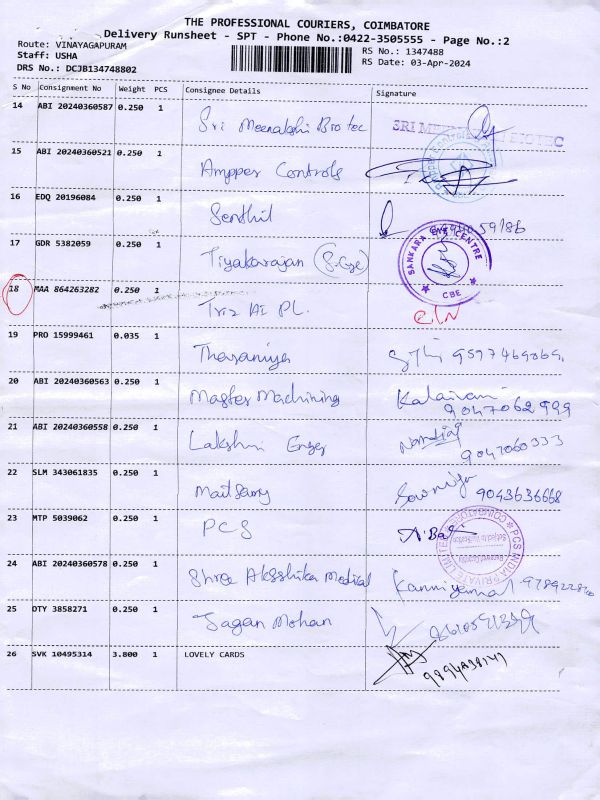 THE PROFESSIONAL COURIERS, COIMBATORE
Delivery Runsheet - SPT - Phone No.:0422-3505555 - Page No.:2
Route: VINAYAGAPURAM RS No.: 1347488
Staff: USHA RS Date: 03-Apr-2024
DRS No.: DCJB134748802
S No Consignment No Weight PCS Consignee Details Signature
14 ABI 20240360587 0.250 1 Sri Meenakshi Bio tec
15 ABI 20240360521 0.250 1 Ampper Controls
16 EDQ 20196084 0.250 1 Senthil
17 GDR 5382059 0.250 1 Tiyakarajan SANKARA EYE CENTRE CBE
18 MAA 864263282 0.250 1 Triz AI PL.
19 PRO 15999461 0.035 1 Tharaniya
20 ABI 20240360563 0.250 1 Master Machining Kalaivani
9047062999
21 ABI 20240360558 0.250 1 Lakshmi Engg
9047060333
22 SLM 343061835 0.250 1 Sowmiya 9043636668
23 MTP 5039062 0.250 1 PCS PCS INDIA PRIVATE LIMITED COIMBATORE
24 ABI 20240360578 0.250 1 Shree Aksshika Medical Kanniyammal
25 OTY 3858271 0.250 1 Jagan Mohan
26 SVK 10495314 3.800 1 LOVELY CARDS